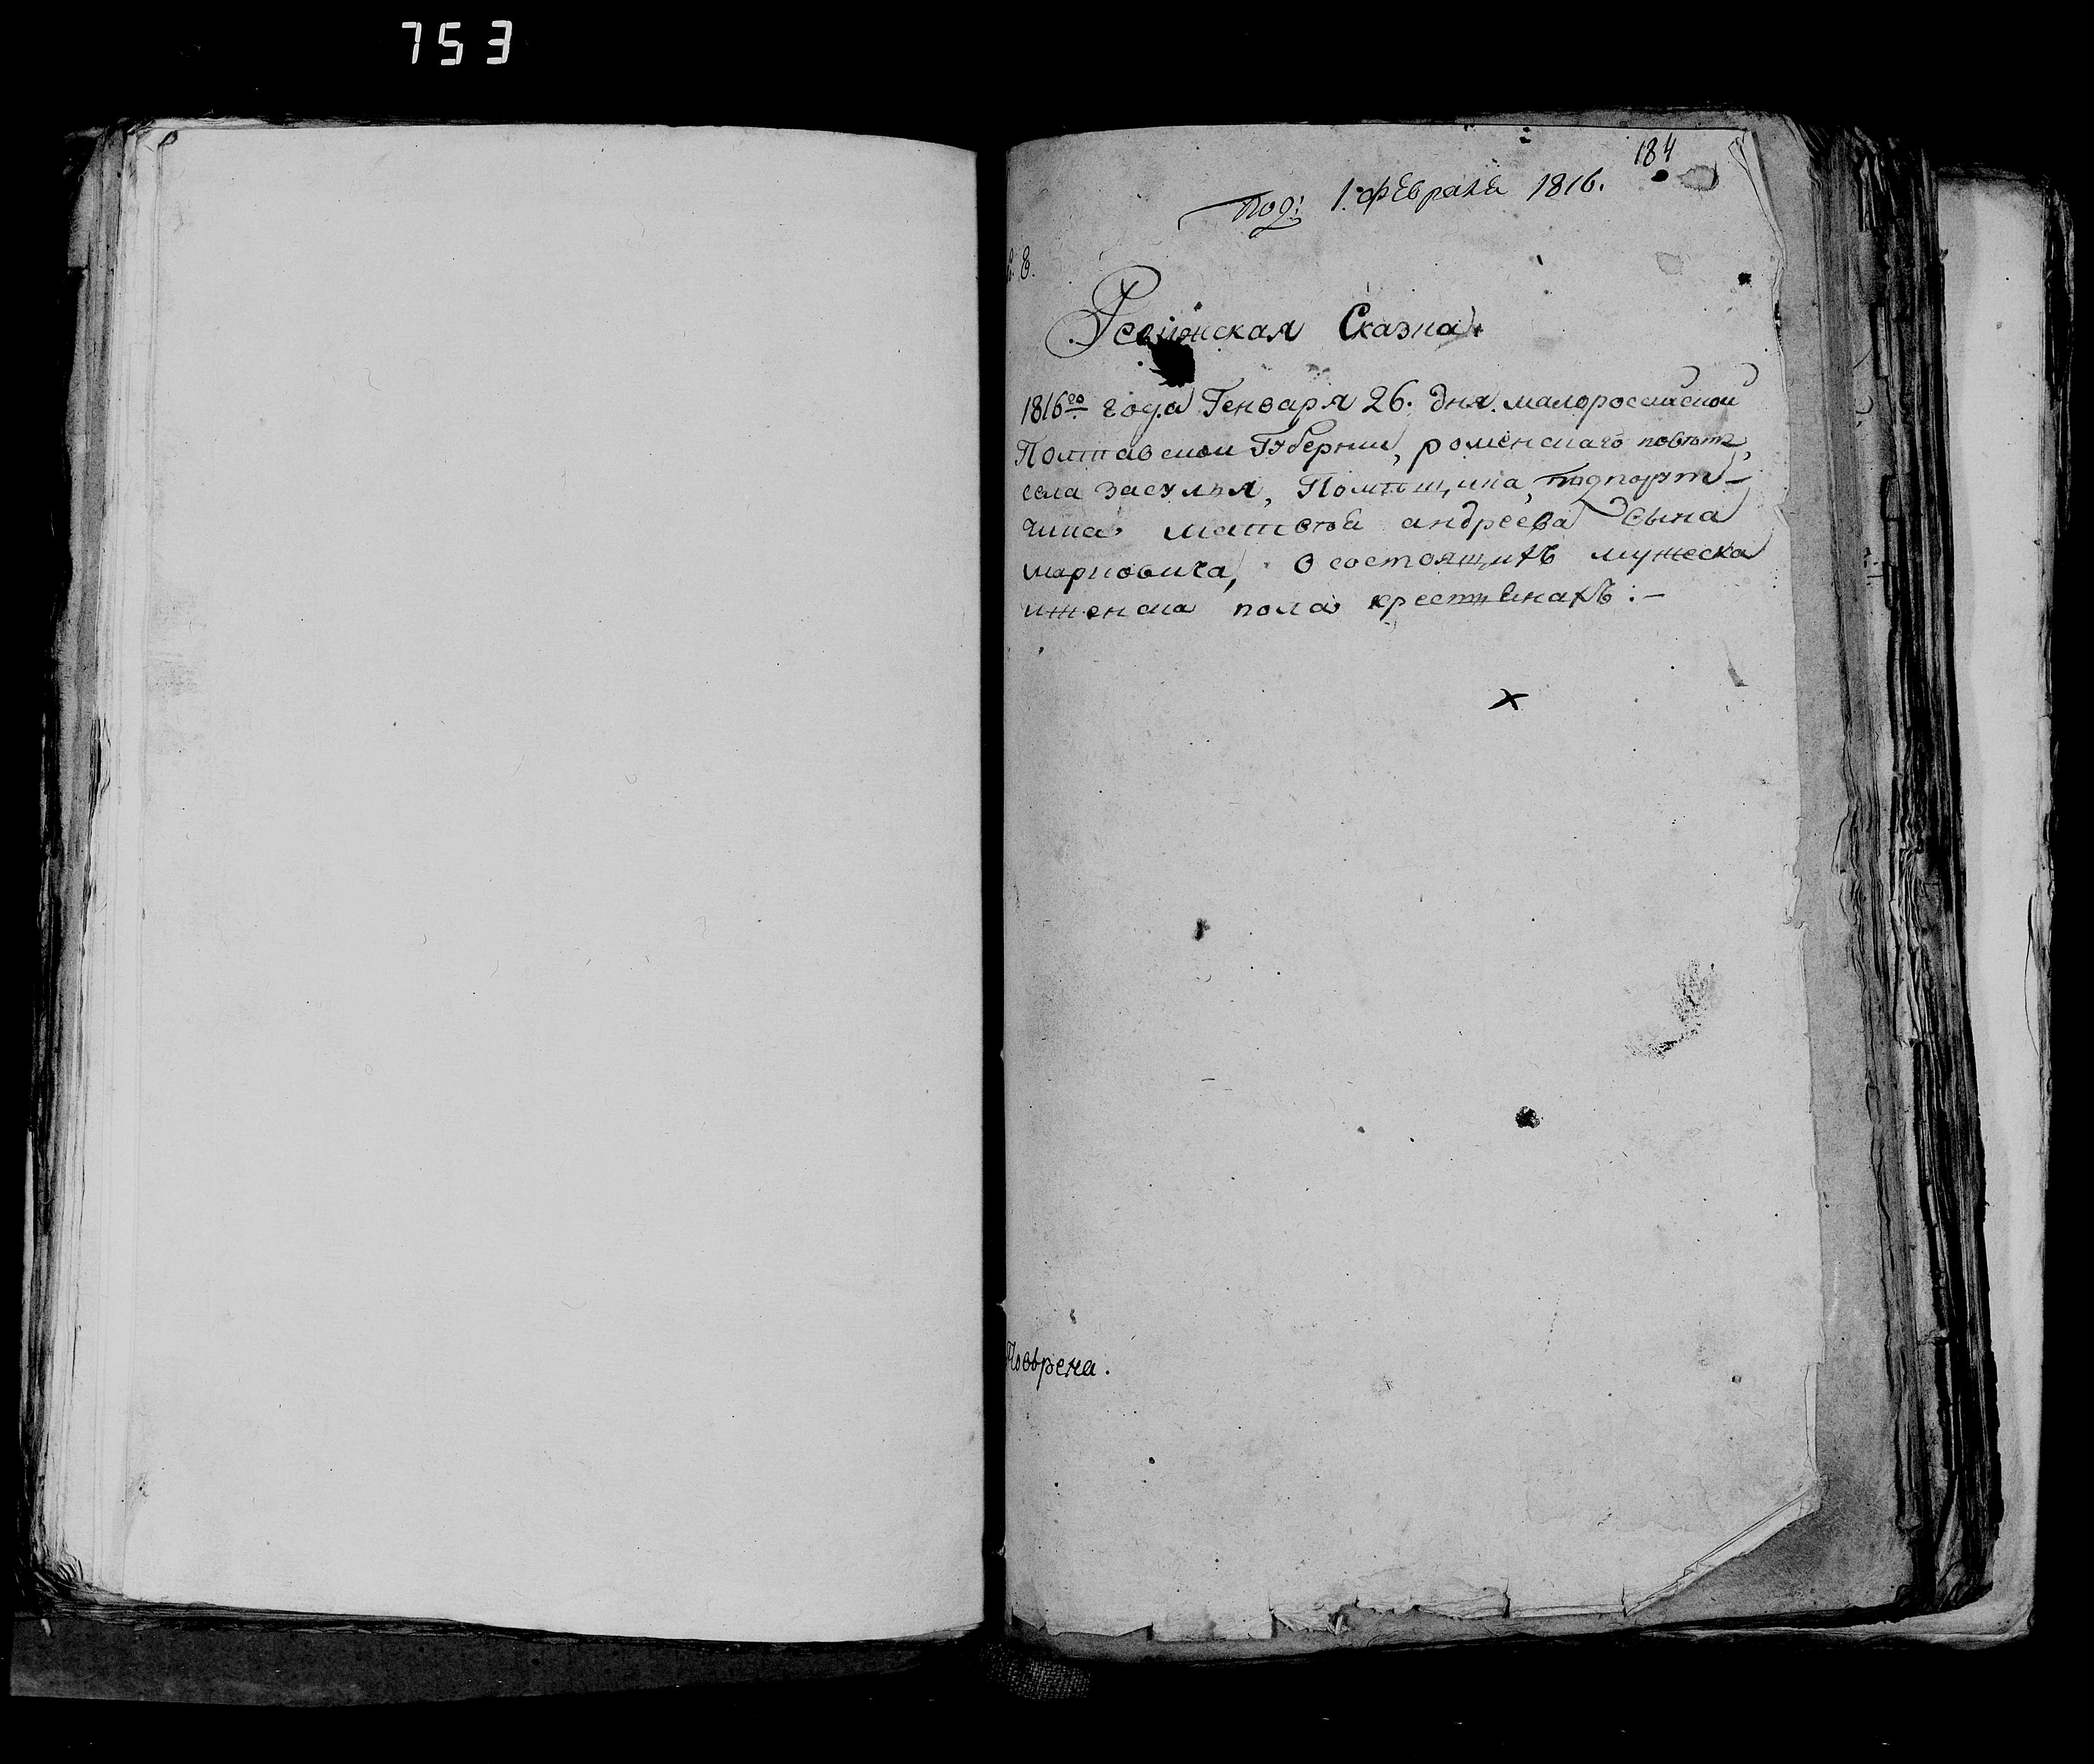 753
184
Под: 1. февраля 1816.
8.
Ревижская Сказка
1816го года Генваря 26. дня. малороссийской
Полтавской Губернии, роменскаго повѣта,
села Засулья, Помѣщика, подпорут-
чика матвѣя андреева сына
марковича, о состоящихъ мужеска
и женска пола крестьянахъ :-
Повѣрена.